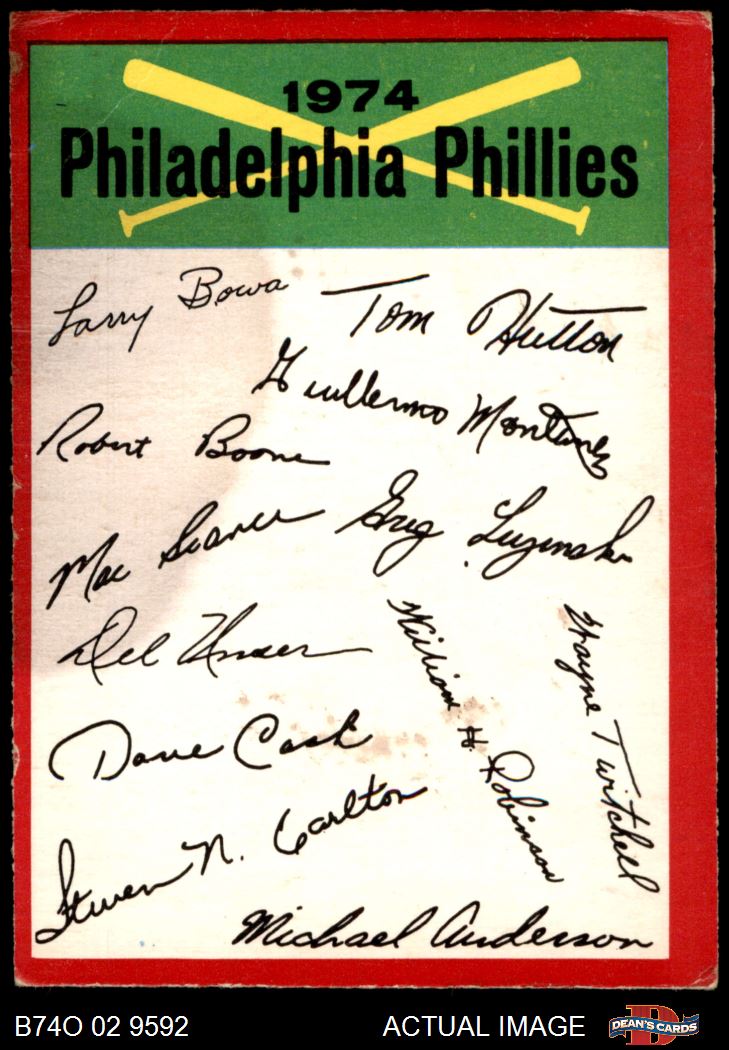 1974
Philadelphia Phillies
Larry Bowa
Tom Hutton
Guillermo Montanez
Robert Boone
Mac Scarce
Greg Luzinski
Del Unser
William H. Robinson
Wayne Twitchell
Dave Cash
Steven N. Carlton
Michael Anderson
B74O 02 9592
ACTUAL IMAGE
D
DEAN'S CARDS